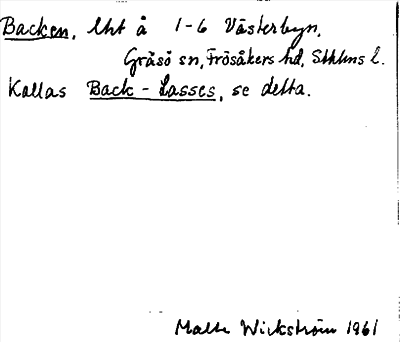 Backen, lht å 1-6 Västerbyn,
Gräsö sn, Frösåkers hd, Sthlms l.
Kallas Back-Lasses, se detta.
Malte Wickström 1961